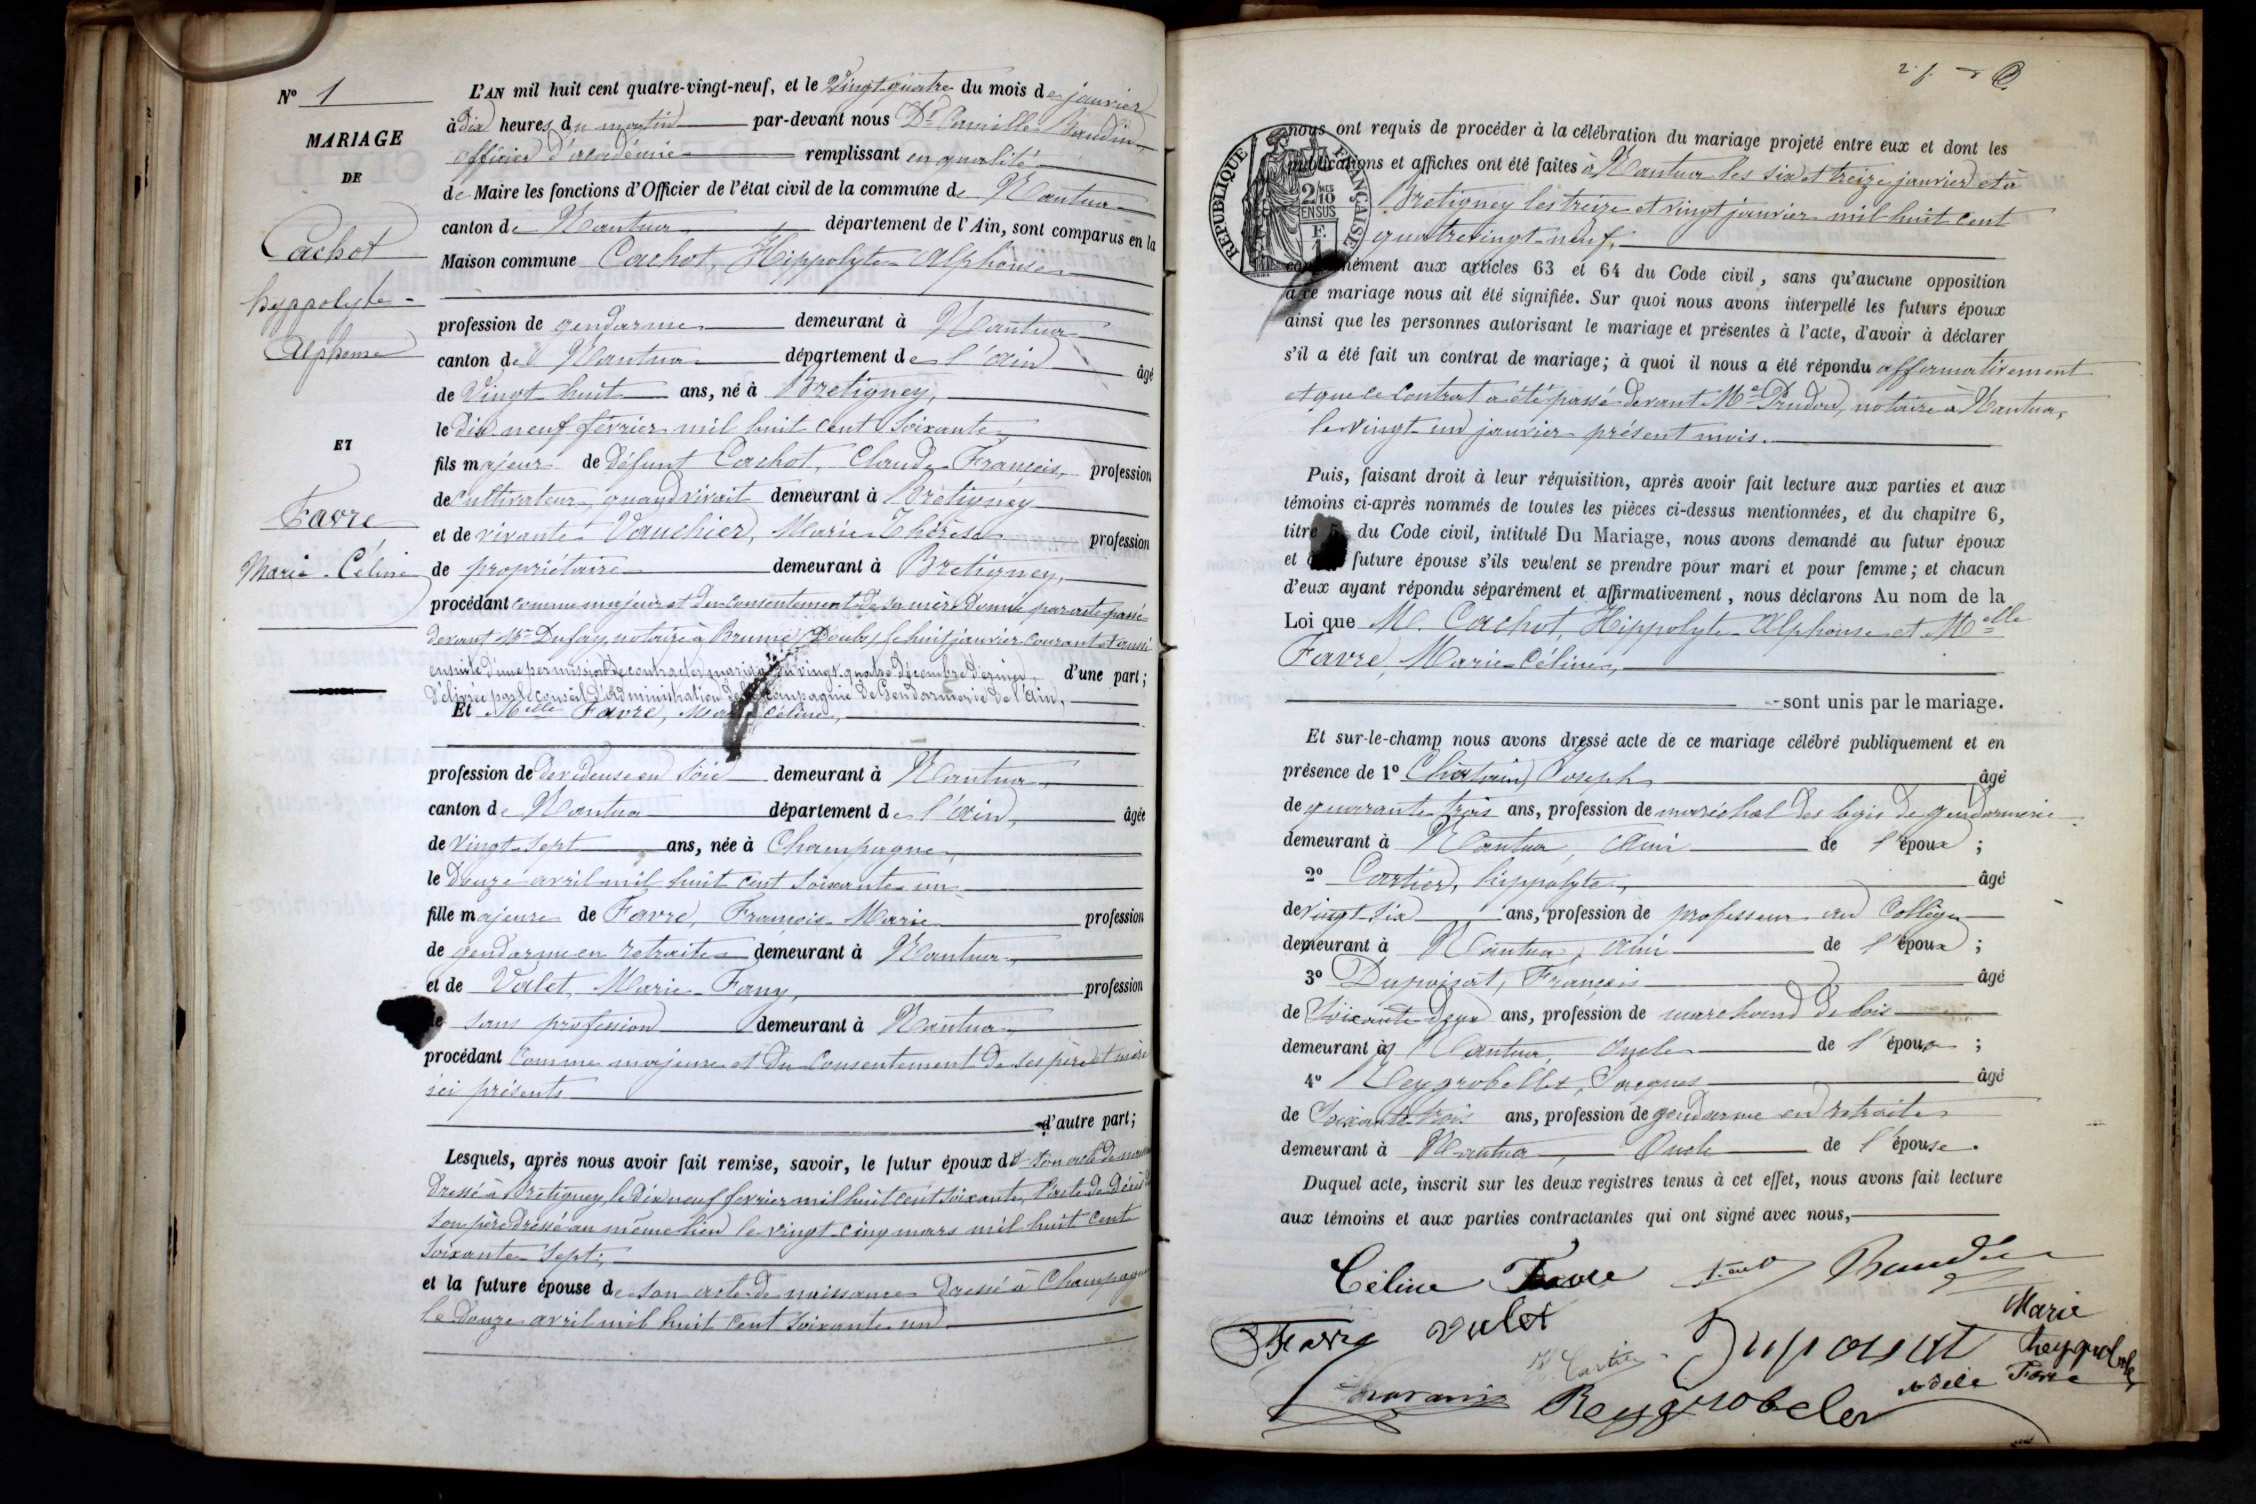 N° 1
MARIAGE
DE
Cachot
hyppolyte
Alphonse
ET
Favre
Marie-Céline
L'AN mil huit cent quatre-vingt-neuf, et le Vingt quatre du mois de janvier
à dix heures du matin par-devant nous Dr Camille Baudin,
officier d'académie remplissant en qualité
de Maire les fonctions d'Officier de l'état civil de la commune de Nantua
canton de Nantua département de l'Ain, sont comparus en la
Maison commune Cachot, Hippolyte Alphonse
profession de gendarme demeurant à Nantua
canton de Nantua département de l'Ain âgé
de Vingt huit ans, né à Bretigney,
le dix neuf février mil huit cent soixante
fils majeur de défunt Cachot, Claude François, profession
de cultivateur quand vivait demeurant à Bretigney
et de vivante Vauchier, Marie Thérèse profession
de propriétaire demeurant à Bretigney,
procédant comme majeur et du consentement de sa mère donné par acte passé
devant Me Dufay, notaire à (Doubs) le huit janvier courant et aussi
ensuite d'une permission de contracter mariage du vingt quatre décembre dernier, d'une part;
délivrée par le conseil d'administration de la compagnie de Gendarmerie de l'Ain,
Et Melle Favre, Marie Céline,
profession de devideuse en soie demeurant à Nantua,
canton de Nantua département de l'Ain, âgée
de vingt sept ans, née à Champagne,
le douze avril mil huit cent soixante un
fille majeure de Favre, François Marie profession
de gendarme en retraite demeurant à Nantua
et de Valet, Marie Fany, profession
de sans profession demeurant à Nantua
procédant comme majeure et du consentement de ses père et mère
ici présents
d'autre part;
Lesquels, après nous avoir fait remise, savoir, le futur époux de son acte de
dressé à Bretigney, le dix neuf fevrier mil huit cent soixante, l'acte de décès
son père dressé au même lieu le vingt cinq mars mil huit cent
soixante sept;
et la future épouse de son acte de naissance dressé à Champagne
le douze avril mil huit cent soixante un
nous ont requis de procéder à la célébration du mariage projeté entre eux et dont les
publications et affiches ont été faites à Nantua les six et treize janvier et à
Bretigney les treize et vingt janvier mil huit cent
quatre vingt-neuf,
RÉPUBLIQUE FRANÇAISE
2/10 MES
EN SUS
F.
1
conformément aux articles 63 et 64 du Code civil, sans qu'aucune opposition
à ce mariage nous ait été signifiée. Sur quoi nous avons interpellé les futurs époux
ainsi que les personnes autorisant le mariage et présentes à l'acte, d'avoir à déclarer
s'il a été fait un contrat de mariage; à quoi il nous a été répondu affermativement
et que ce contrat a été passé devant Me Prudon, notaire à Nantua,
le vingt un janvier présent mois.
Puis, faisant droit à leur réquisition, après avoir fait lecture aux parties et aux
témoins ci-après nommés de toutes les pièces ci-dessus mentionnées, et du chapitre 6,
titre 5 du Code civil, intitulé Du Mariage, nous avons demandé au futur époux
et future épouse s'ils veulent se prendre pour mari et pour femme; et chacun
d'eux ayant répondu séparément et affirmativement, nous déclarons Au nom de la
Loi que M. Cachot, Hippolyte Alphonse et Melle
Favre, Marie Céline,
sont unis par le mariage.
Et sur-le-champ nous avons dressé acte de ce mariage célébré publiquement et en
présence de 1° Joseph âgé
de quarante trois ans, profession de maréchal des logis de gendarmerie
demeurant à Nantua, Ami de l'époux;
2° Cartier, hippolyte, âgé
de vingt six ans, profession de professeur au Collège
demeurant à Nantua, ami de l'époux;
3° Dupoisat, François âgé
de soixante deux ans, profession de marchand de bois
demeurant à Nantua, Oncle de l'épouse;
4° Reygrobellet, Jacques âgé
de soixante trois ans, profession de gendarme en retraite
demeurant à Nantua, Oncle de l'épouse.
Duquel acte, inscrit sur les deux registres tenus à cet effet, nous avons fait lecture
aux témoins et aux parties contractantes qui ont signé avec nous,
Céline Favre Baudin
Favre Valet Marie
H. Cartier Dupoisat
Adèle Favre